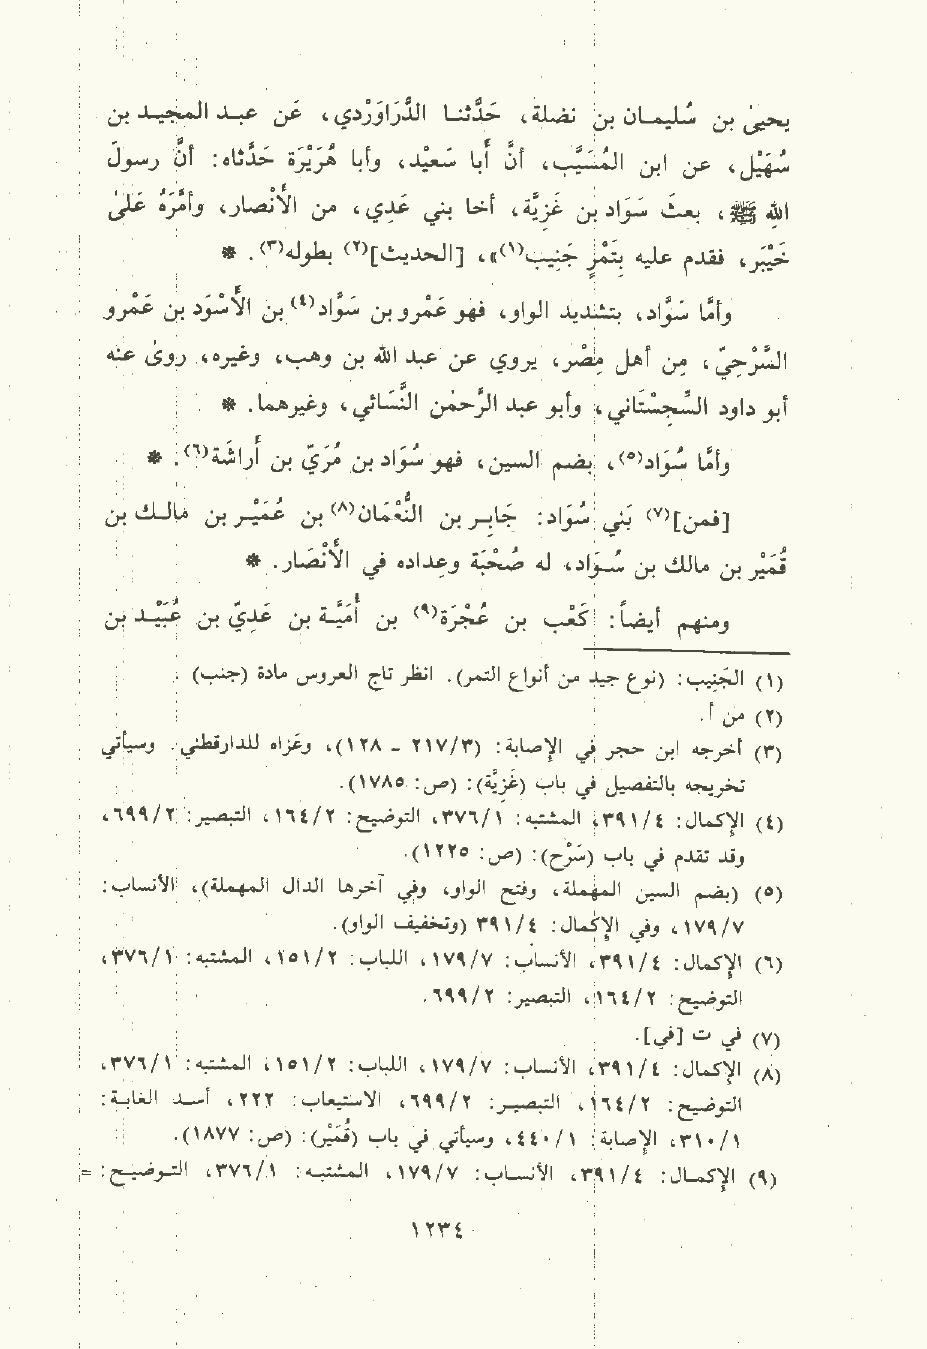 يحيىٰ بن سُليمـان بن نضلة، حَدَّثنـا الدَّرَاوَرْدي، عَن عبـد المجيـد بن
سُهَيْل، عن ابن المُسَيَّب، أَنَّ أبا سَعيْد، وأبا هُرَيْرَة حَدَّثاه: أنَّ رسولَ
اللهِ ﷺ، بعثَ سَوَاد بن غَزِيَّة، أخا بني عَدِي، من الأَنْصار، وأمَّرَهُ عَلىٰ
خَيْبَر، فقدم عليه بِتَمْرٍ جَنِيب(١)»، [الحديث](٢) بطوله(٣). *
وأمَّا سَوَّاد، بتشديد الواو، فهو عَمْرو بن سَوَّاد(٤) بن الأَسْوَد بن عَمْرو
السَّرْحِيّ، مِن أهل مِصْر، يروي عن عبد الله بن وهب، وغيره، روىٰ عنه
أبو داود السِّجِسْتَاني، وأبو عبد الرَّحمٰن النَّسَائي، وغيرهما. *
وأمَّا سُوَاد(٥)، بضم السين، فهو سُوَاد بن مُرَيّ بن أَرَاشَة(٦). *
[فمن](٧) بَني سُوَاد: جَابِـر بن النُّعْمَان(٨) بن عُمَيْـر بن مالـك بن
قُمَيْر بن مالك بن سُـوَاد، له صُحْبَة وعِداده في الأَنْصَار. *
ومنهم أيضاً: كَعْب بن عُجْرَة(٩) بن أُمَيَّـة بن عَدِيّ بن عُبَيْـد بن
(١) الجَنِيب: (نوع جيد من أنواع التمر). انظر تاج العروس مادة (جنب)
(٢) من أ.
(٣) أخرجه ابن حجر في الإصابة: (٢١٧/٣ - ١٢٨)، وعزاه للدارقطني. وسيأتي
تخريجه بالتفصيل في باب (غَزِيَّة): (ص: ١٧٨٥).
(٤) الإكمال: ٣٩١/٤، المشتبه: ٣٧٦/١، التوضيح: ١٦٤/٢، التبصير: ٦٩٩/٢،
وقد تقدم في باب (سَرْح): (ص: ١٢٢٥).
(٥) (بضم السين المهملة، وفتح الواو، وفي آخرها الدال المهملة)، الأنساب:
١٧٩/٧، وفي الإكمال: ٣٩١/٤ (وتخفيف الواو).
(٦) الإكمال: ٣٩١/٤، الأنساب: ١٧٩/٧، اللباب: ١٥١/٢، المشتبه: ٣٧٦/١،
التوضيح: ١٦٤/٢، التبصير: ٦٩٩/٢.
(٧) في ت [في].
(٨) الإكمال: ٣٩١/٤، الأنساب: ١٧٩/٧، اللباب: ١٥١/٢، المشتبه: ٣٧٦/١،
التوضيح: ١٦٤/٢، التبصيـر: ٦٩٩/٢، الاستيعاب: ٢٢٢، أسـد الغابـة:
٣١٠/١، الإصابة: ٤٤٠/١، وسيأتي في باب (قُمَيْر): (ص: ١٨٧٧).
(٩) الإكمـال: ٣٩١/٤، الأنسـاب: ١٧٩/٧، المشتبـه: ٣٧٦/١، التـوضيـح: =
١٢٣٤